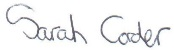 Sarah Corder